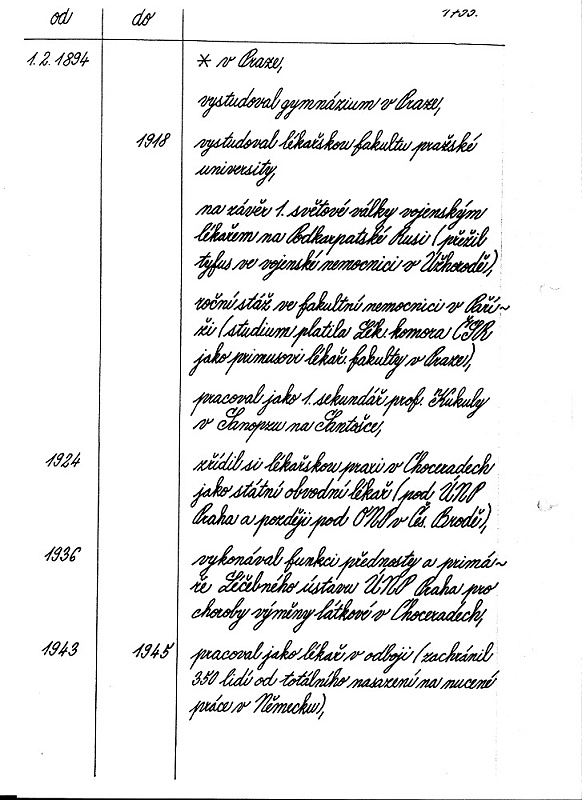 od do
1.2.1894 * v Praze,
vystudoval gymnázium v Praze,
1918 vystudoval lékařskou fakultu pražské
university,
na závěr 1. světové války vojenským
lékařem na Podkarpatské Rusi (přežil
tyfus ve vojenské nemocnici v Užhorodě),
roční stáž ve fakultní nemocnici v Paří-
ži (studium platila Lék. komora ČSR
jako primusovi lékař. fakulty v Praze),
pracoval jako 1. sekundář prof. Kukuly
v Sanopzu na Santošce,
1924 zřídil si lékařskou praxi v Choceradech
jako státní obvodní lékař (pod ÚNP
Praha a později pod ONP v Čes. Brodě),
1936 vykonával funkci přednosty a primá-
ře Léčebného ústavu ÚNP Praha pro
choroby výměny látkové v Choceradech,
1943 1945 pracoval jako lékař v odboji (zachránil
350 lidí od totálního nasazení na nucené
práce v Německu),